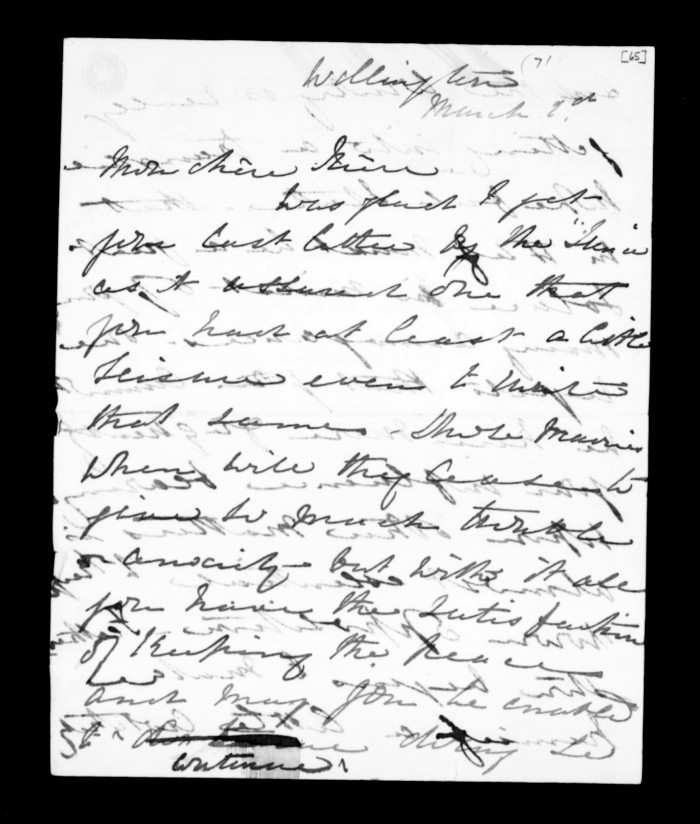 (71
[65]
Wellington
March 2d
Mon chère
Was glad to get
your last letter by the "
as it assured one that
you had at least a little
leisure even to write
that same. Those Maories
when will they cease to
give so much trouble
& anxiety but with it all
you have the satisfaction
of keeping the peace
and may you be enable
to continue doing so